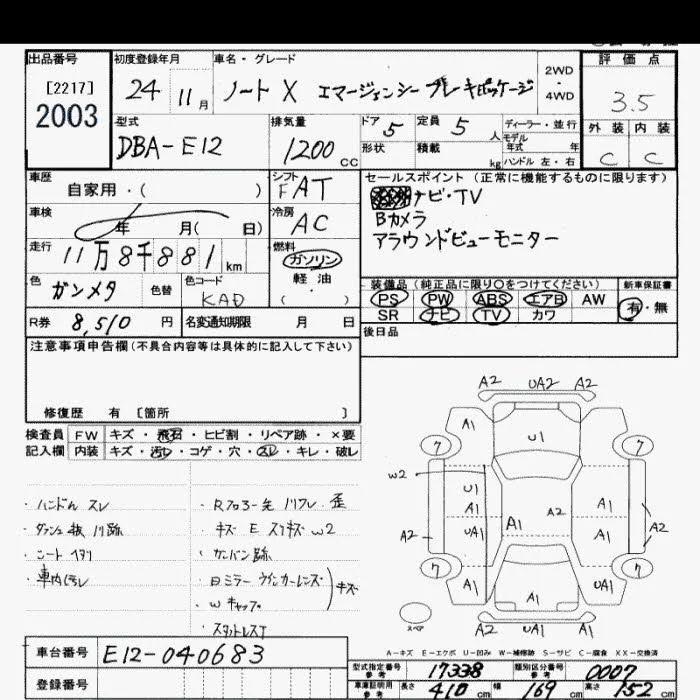 出品番号 初度登録年月 車名・グレード 評価点
[2217] 24 11月 ノート X エマージェンシーブレーキパッケージ 2WD・4WD 3.5
2003
型式 排気量 ドア 5 定員 5 人 ディーラー・並行 外装 内装
DBA-E12 1200 CC 形状 積載 kg モデル年式 年 ハンドル 左・右 C C
車歴 自家用・( ) シフト FAT セールスポイント(正常に機能するものに限ります)
車検 年 月( 日) 冷房 AC ナビ・TV
Bカメラ
走行 11万8千881 km 燃料 ガソリン 軽油 ( ・ ) アラウンドビューモニター
色 ガンメタ 色替 色コード KAD 装備品(純正品に限り○をつけてください) 新車保証書
PS PW ABS エアB AW 有・無
R券 8,510 円 名変通知期限 月 日 SR ナビ TV カワ
注意事項申告欄(不具合内容等は具体的に記入して下さい) 後日品
修復歴 有 [箇所 ]
検査員 FW キズ・飛石・ヒビ割・リペア跡・×要
記入欄 内装 キズ・汚レ・コゲ・穴・スレ・キレ・破レ
・ハンドル スレ
・シート ヘタリ
・車内汚レ
・キズ E スリキズ W2
・W キャップ
A2 UA2 A2
A1 U1
7 7
W2 U1
A1 A1 A1
UA1 A1
A2 A2
7 7
A1 A1 UA1
スペア A2 UA1 A2
A-キズ E-エクボ U-凹み W-補修跡 S-サビ C-腐食 XX-交換済
車台番号 E12-040683
型式指定番号 参考 17338 類別区分番号 参考 0007
登録番号 車庫証明用 参考 長さ 410 cm 幅 169 cm 高さ 152 cm